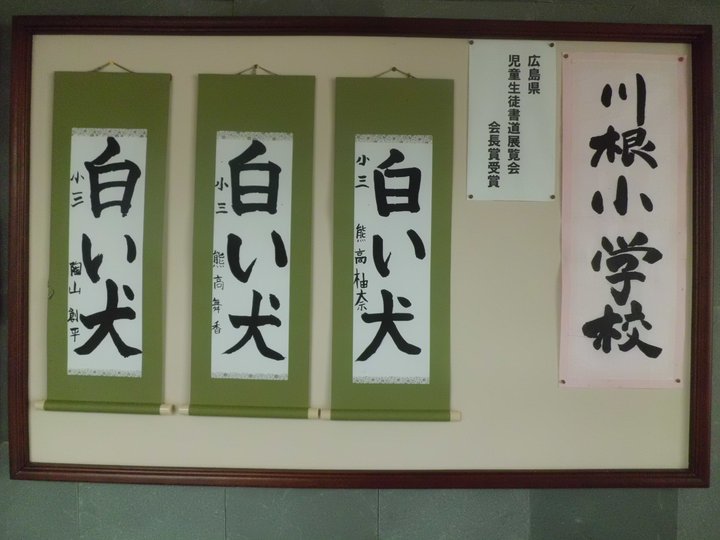 川根小学校
広島県
児童生徒書道展覧会
会長賞受賞
白い犬
小三 熊高柚奈
白い犬
小三 熊高舞香
白い犬
小三 陶山創平